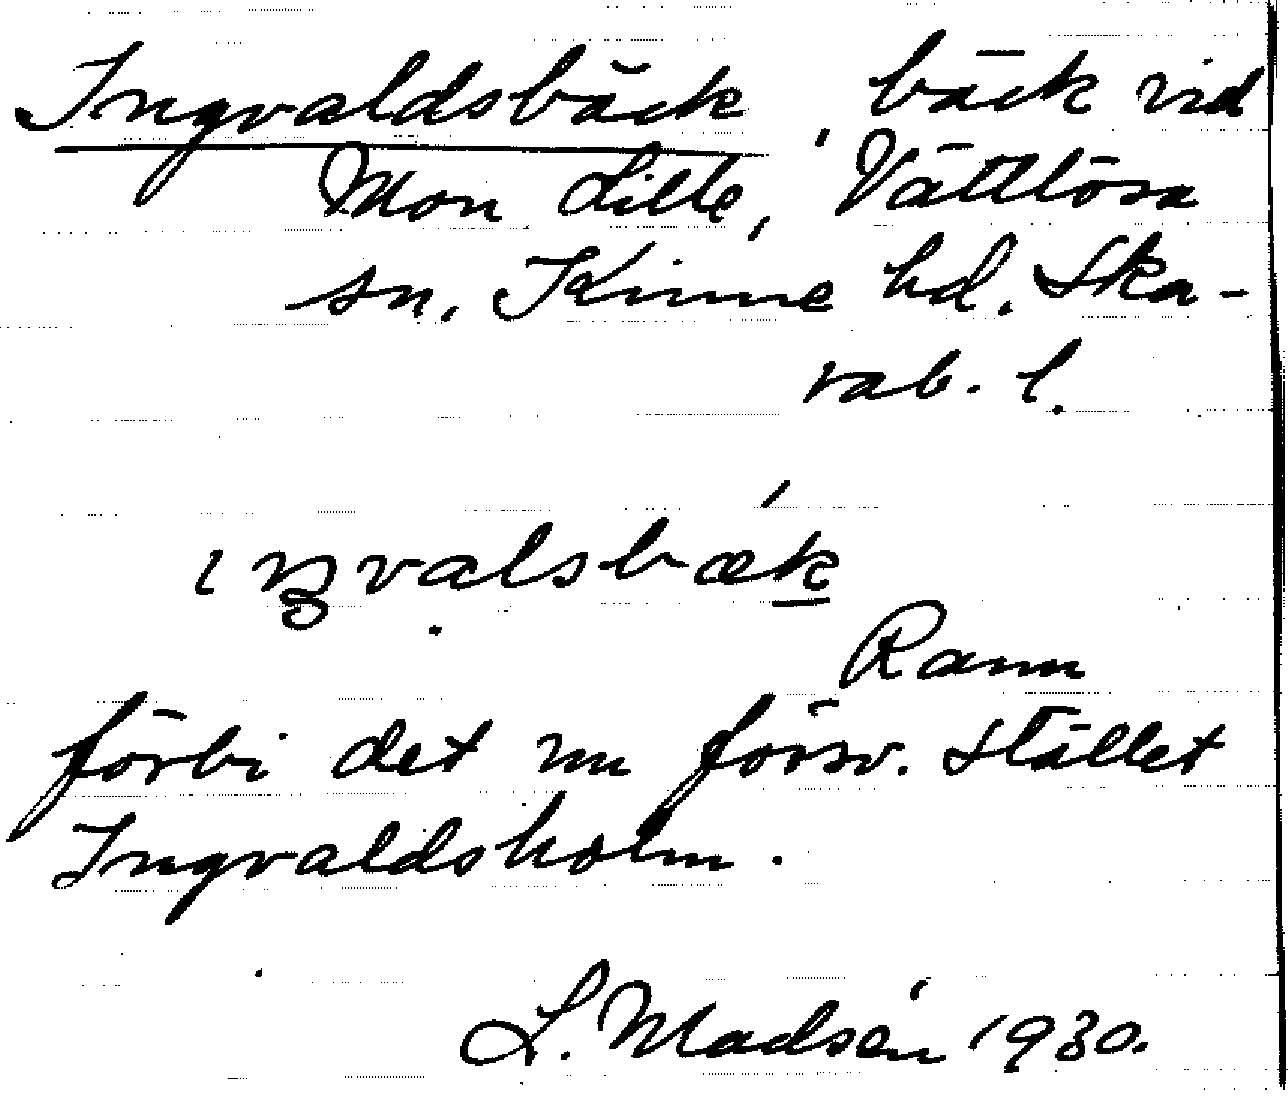 Ingvaldsbäck, bäck vid
Mon Lille, Vättlösa
sn. Kinne hd. Ska-
rab. l.
ıŋvalsbæk
Rann
förbi det nu försv. stället
Ingvaldsholm.
L. Madsén 1930.